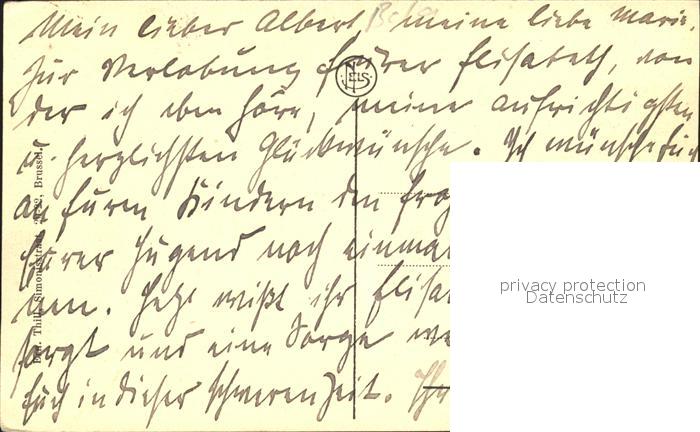 Mein lieber Albert, meine liebe Marie.
Zur Verlobung Eurer Elisabeth, von
der ich eben höre, meine aufrichtigsten
u. herzlichsten Glückwünsche. Ich wünsche Euch
an Euren Kindern den
Eurer Jugend noch einmal
Jetzt wißt ihr
und eine Sorge
Euch in dieser schweren Zeit.
NELS
Ern. Thill, Bruxelles
privacy protection
Datenschutz